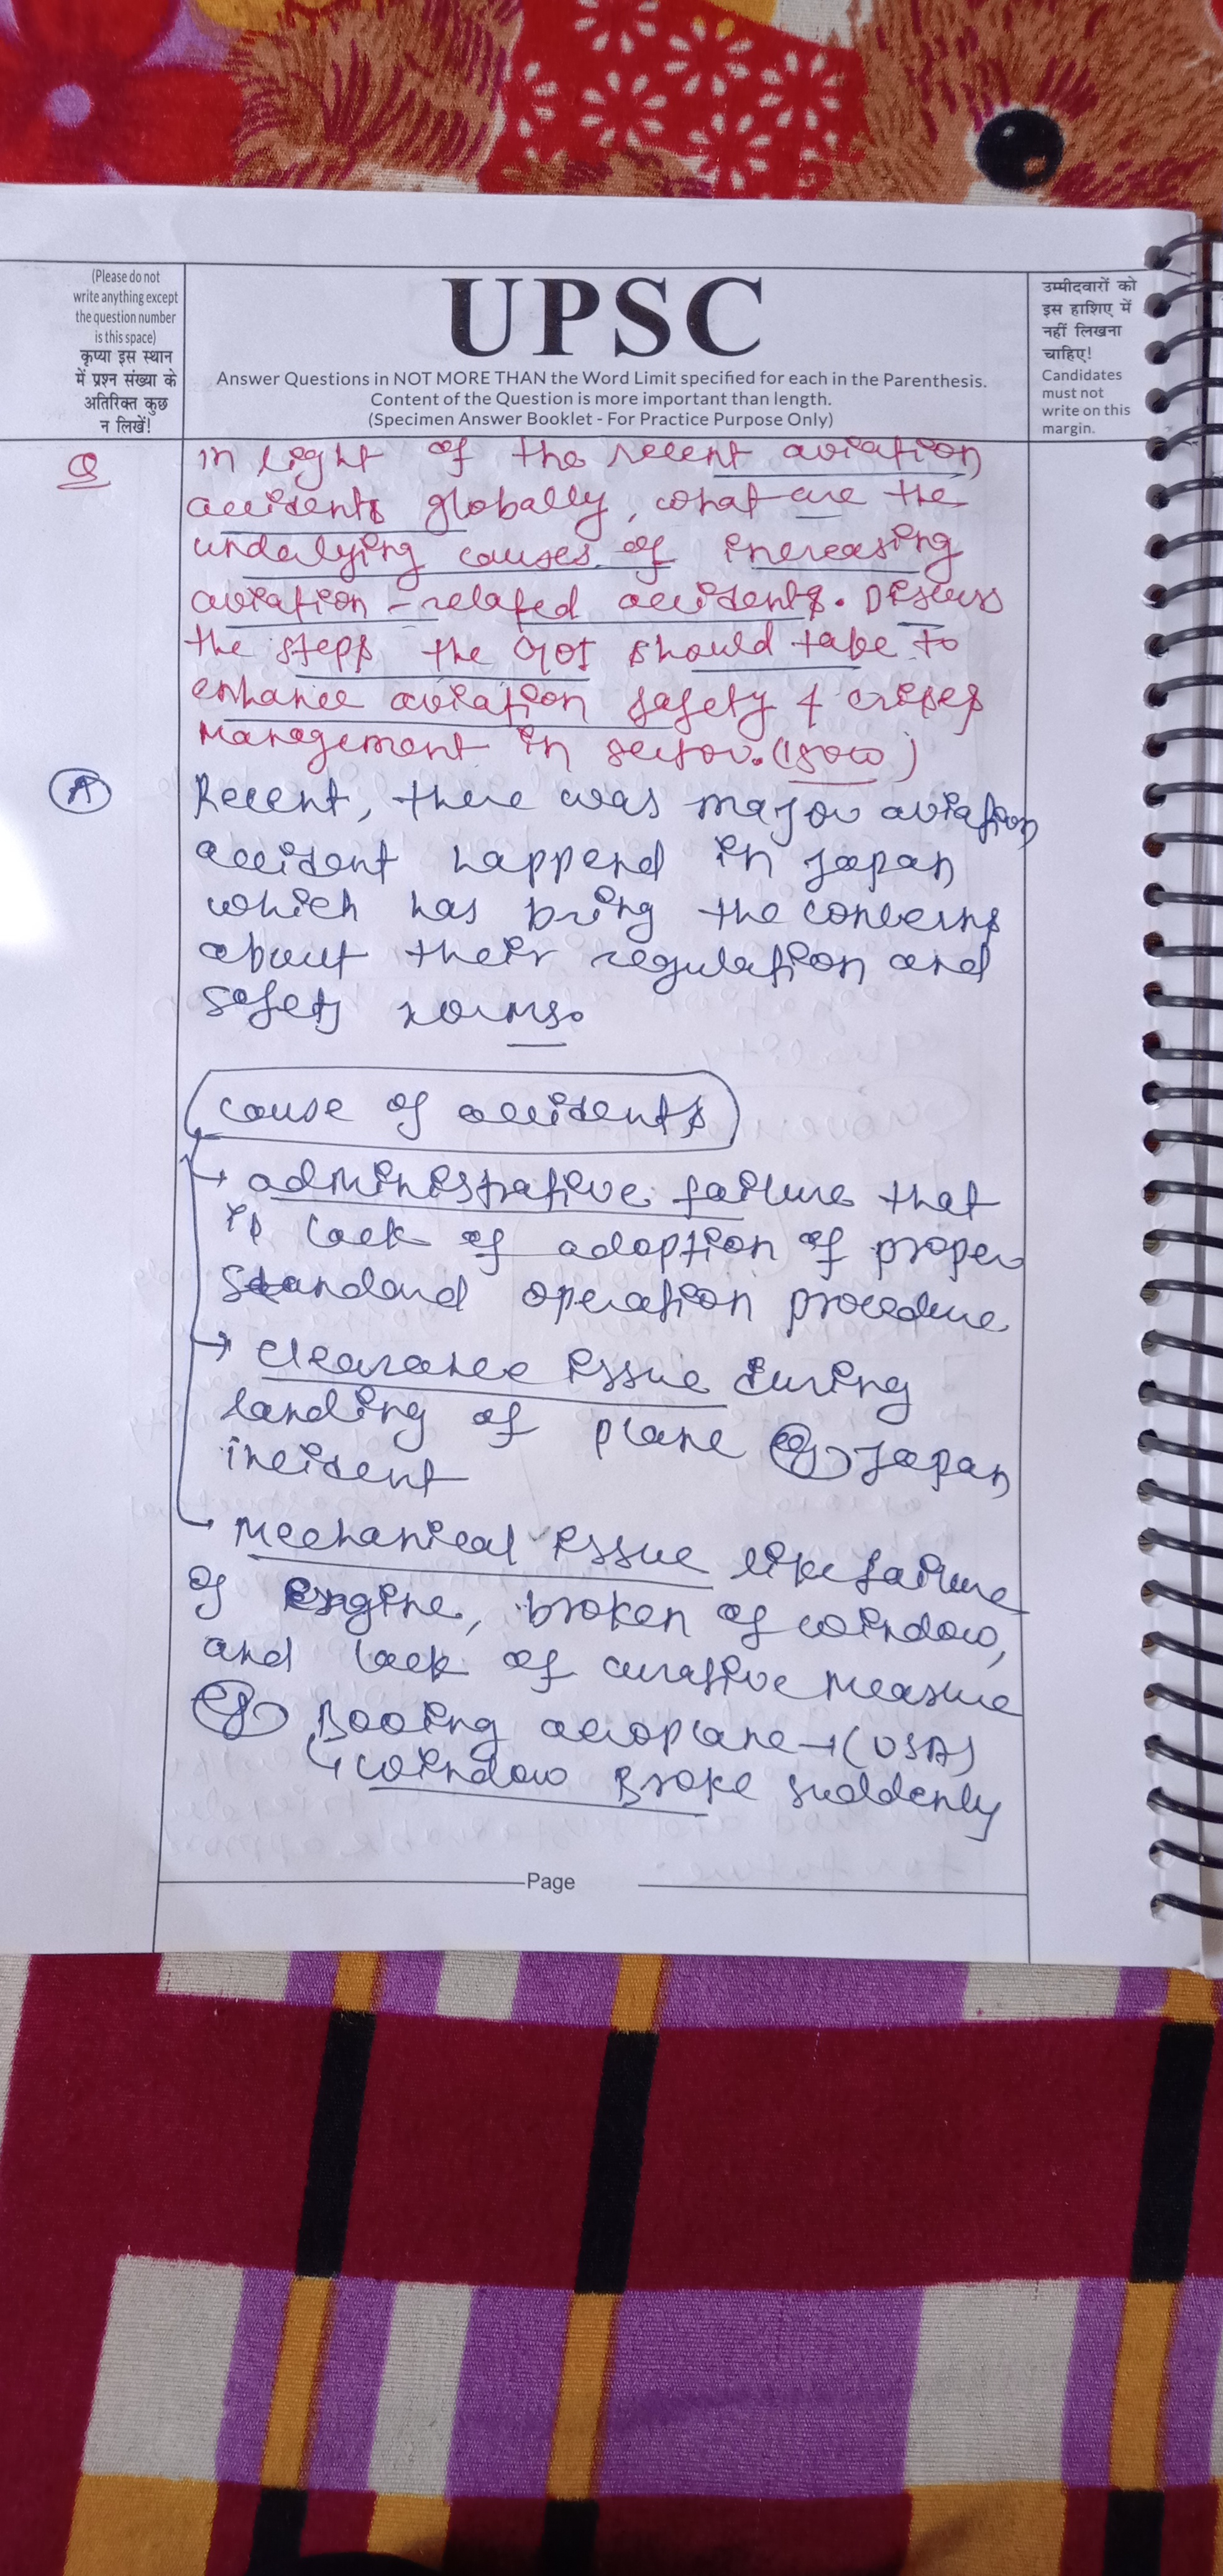 (Please do not
write anything except
the question number
is this space)
कृप्या इस स्थान
में प्रश्न संख्या के
अतिरिक्त कुछ
न लिखें!
UPSC
Answer Questions in NOT MORE THAN the Word Limit specified for each in the Parenthesis.
Content of the Question is more important than length.
(Specimen Answer Booklet - For Practice Purpose Only)
उम्मीदवारों को
इस हाशिए में
नहीं लिखना
चाहिए!
Candidates
must not
write on this
margin.
Q
in light of the recent aviation
accidents globally, what are the
underlying causes of increasing
aviation-related accidents. Discuss
the steps the GOI should take to
enhance aviation safety & crises
Management in sector. (150w)
A
Recent, there was major aviation
accident happend in Japan
which has bring the concerns
about their regulation and
safety norms.
cause of accidents
→ administrative failure that
is lack of adoption of proper
standard operation procedure
→ clearance issue during
landing of plane eg) Japan
incident
→ Mechanical issue like failure
of Engine, broken of window,
and lack of curative measure
eg) Booing aeroplane → (USA)
↳ window Broke suddenly
Page